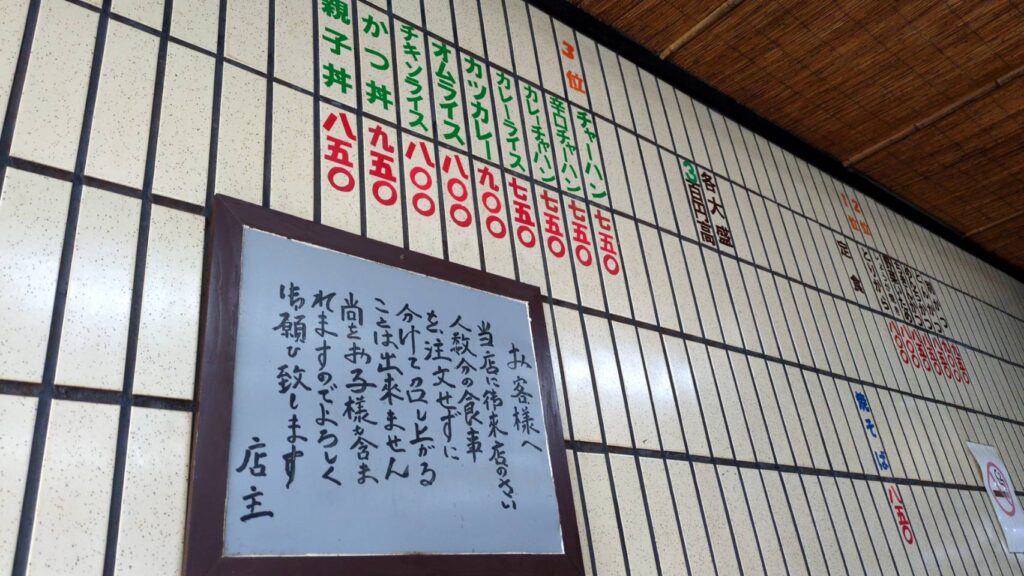 3位
チャーハン 七五〇
辛口チャーハン 七五〇
カレーチャハン 七五〇
カレーライス 七五〇
カツカレー 九〇〇
オムライス 八〇〇
チキンライス 八〇〇
かつ丼 九五〇
親子丼 八五〇
各大盛
3百円高
12位
定食
焼そば 八五〇
お客様へ
当店に御来店のさい
人数分の食事
を、注文せずに
分けて召し上がる
ことは出来ません
尚をお子様も含ま
れますのでよろしく
御願ひ致します
店主